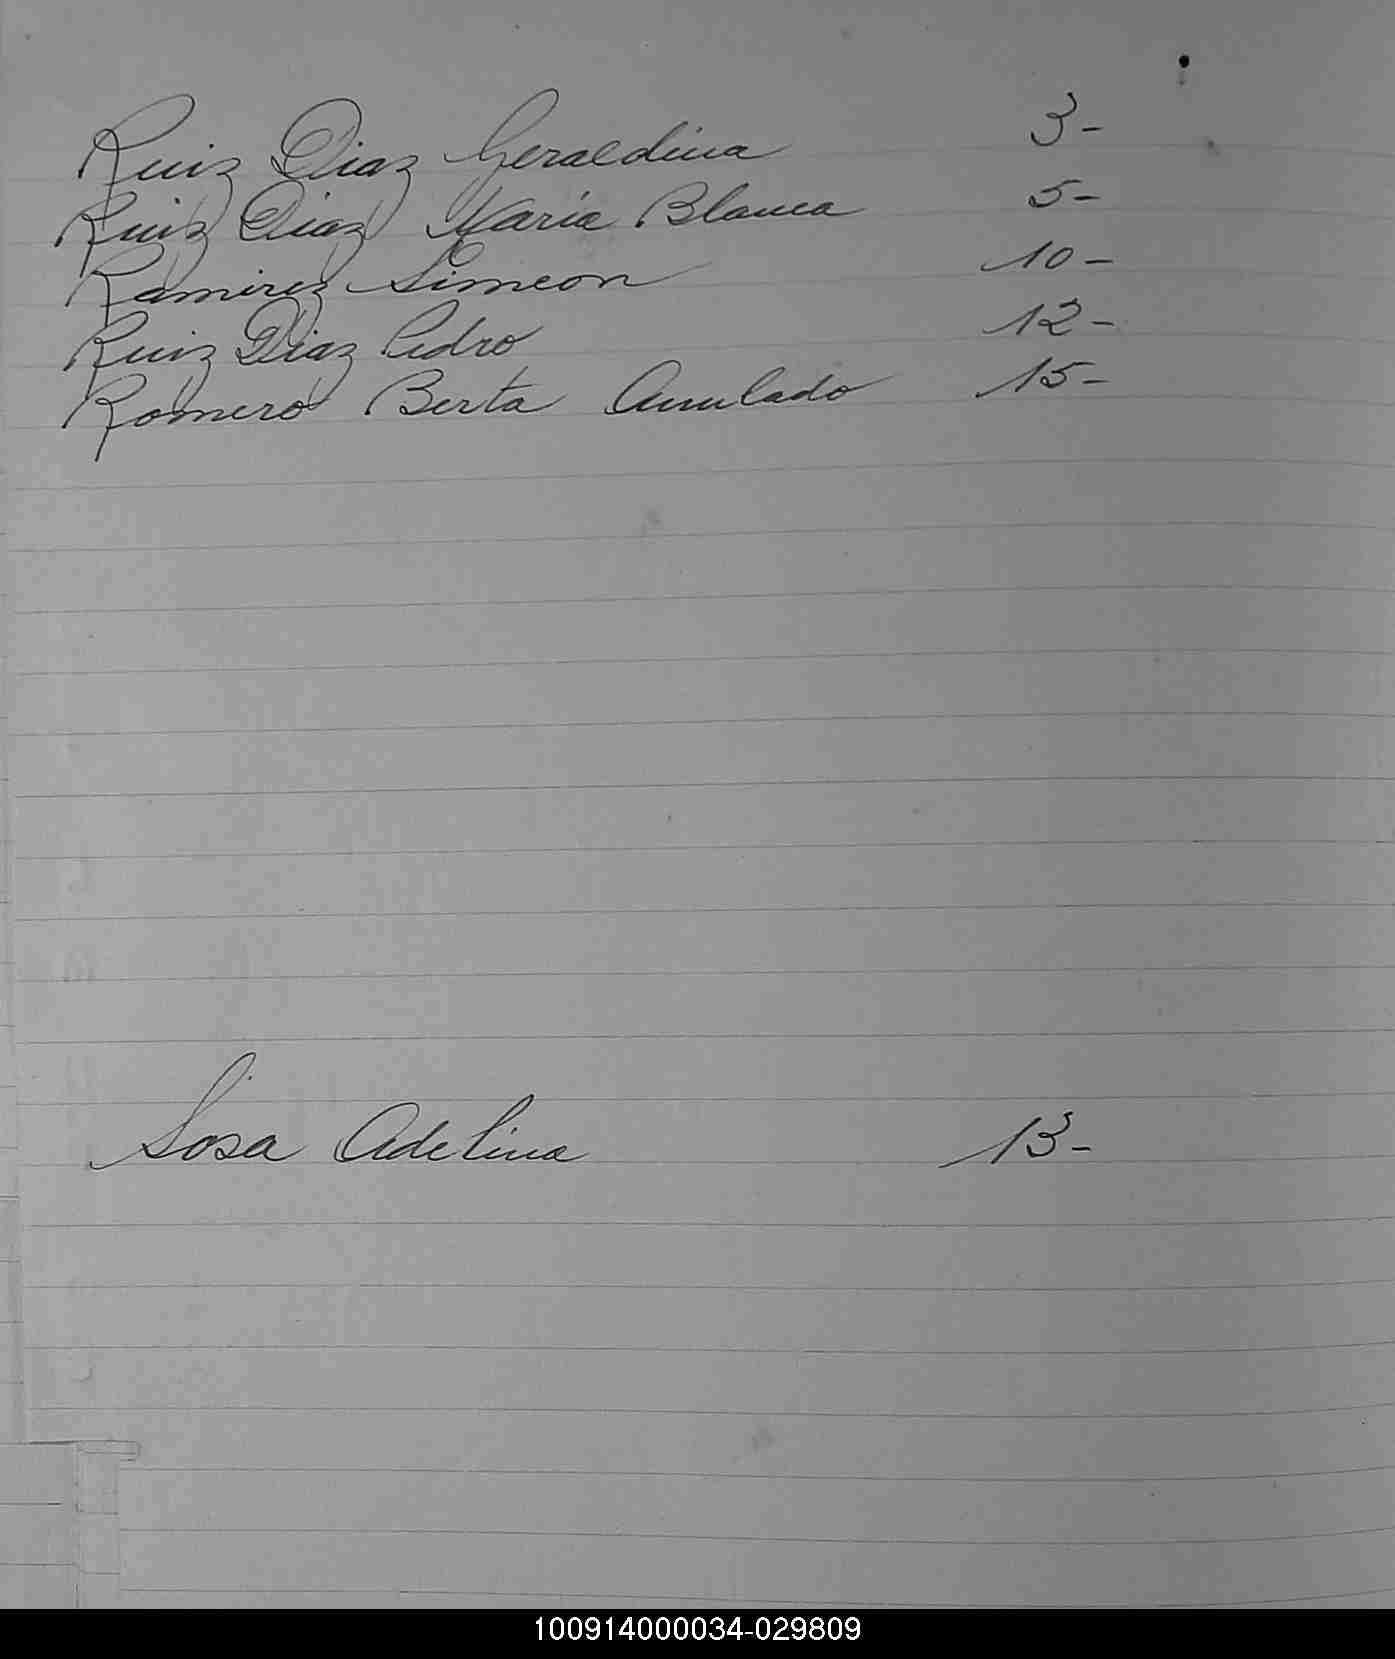 Ruiz Diaz Geraldina 3-
Ruiz Diaz Maria Blanca 5-
Ramirez Simeon 10-
Ruiz Diaz Pedro 12-
Romero Berta Anulado 15-
Sosa Adelina 13-
100914000034-029809